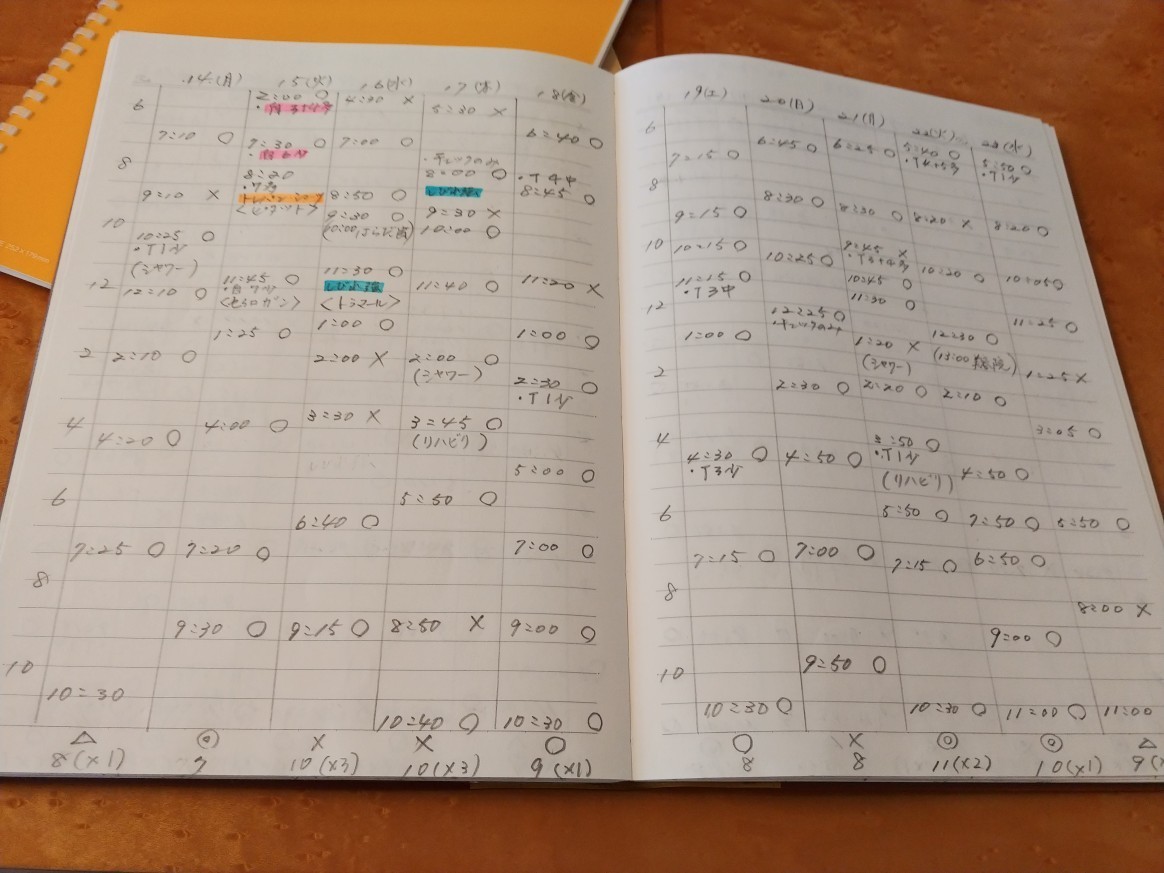 14(月)
15(火)
16(水)
17(木)
18(金)
6
8
10
12
2
4
6
8
10
7:10 ○
9:10 ×
10:25 ○
・T1N
(シャワー)
12:10 ○
2:10 ○
4:20 ○
7:25 ○
10:30
△
8(×1)
2:00 ○
7:30 ○
8:20
11:45 ○
1:25 ○
4:00 ○
7:20 ○
9:30 ○
◎
4:30 ×
7:00 ○
8:50 ○
9:30 ○
11:30 ○
<トラマール>
1:00 ○
2:00 ×
3:30 ×
6:40 ○
9:15 ○
×
10(×3)
5:30 ×
・チェックのみ
8:00 ○
9:30 ×
10:00 ○
11:40 ○
2:00 ○
(シャワー)
3:45 ○
(リハビリ)
5:50 ○
8:50 ×
10:40 ○
×
10(×3)
6:40 ○
・T4中
8:45 ○
11:20 ×
1:00 ○
2:30 ○
・T1N
5:00 ○
7:00 ○
9:00 ○
10:30 ○
○
9(×1)
19(土)
20(日)
21(月)
22(火)
23(水)
6
8
10
12
2
4
6
8
10
7:15 ○
9:15 ○
10:15 ○
11:15 ○
・T3中
1:00 ○
4:30 ○
・T3N
7:15 ○
10:30 ○
○
8
6:45 ○
8:30 ○
10:25 ○
12:25 ○
・チェックのみ
2:30 ○
4:50 ○
7:00 ○
9:50 ○
×
8
6:25 ○
8:30 ○
9:45 ×
10:45 ○
11:30 ○
1:20 ×
(シャワー)
2:20 ○
3:50 ○
・T1N
(リハビリ)
5:50 ○
7:15 ○
10:30 ○
◎
11(×2)
5:40 ○
8:20 ×
10:20 ○
12:30 ○
2:10 ○
4:50 ○
6:50 ○
9:00 ○
11:00 ○
◎
10(×1)
5:50 ○
・T1N
8:20 ○
10:05 ○
11:25 ○
1:25 ×
3:05 ○
5:50 ○
8:00 ×
11:00
△